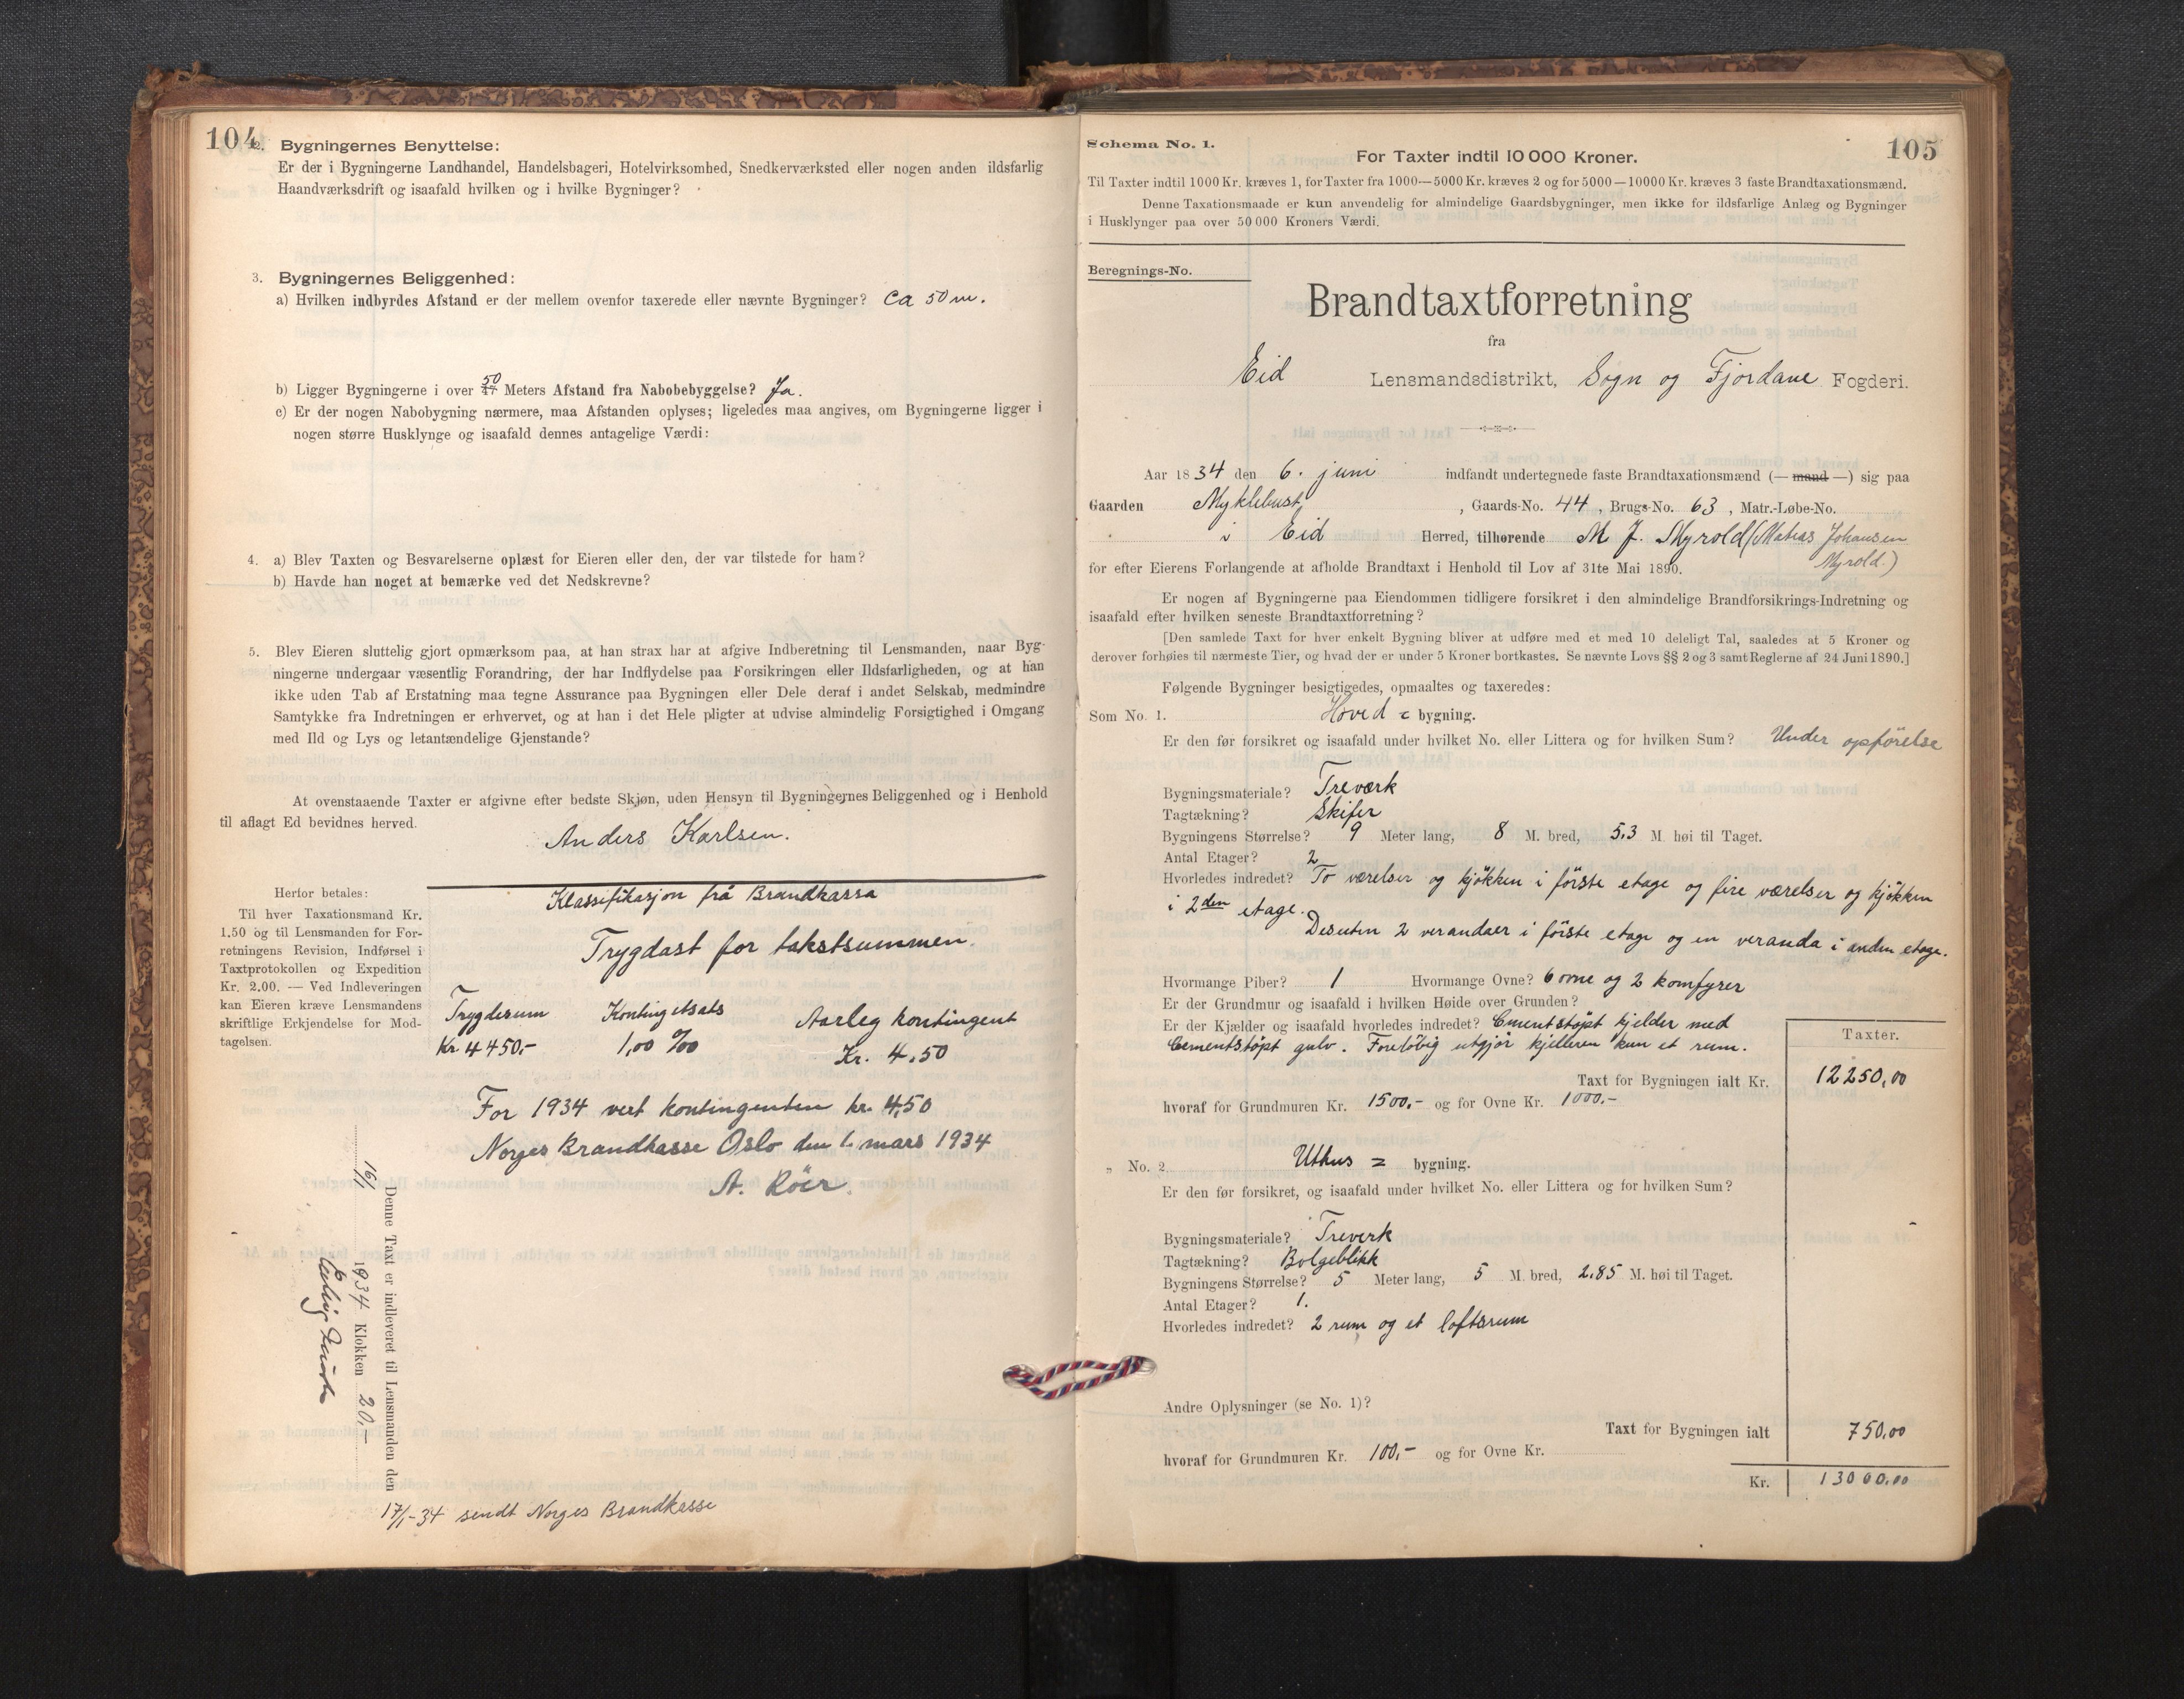 104
2. Bygningernes Benyttelse:
Er der i Bygningerne Landhandel, Handelsbageri, Hotelvirksomhed, Snedkerværksted eller nogen anden ildsfarlig
Haandværksdrift og isaafald hvilken og i hvilke Bygninger?
3. Bygningernes Beliggenhed:
a) Hvilken indbyrdes Afstand er der mellem ovenfor taxerede eller nævnte Bygninger? Ca 50 m.
50
b) Ligger Bygningerne i over 47 Meters Afstand fra Nabobebyggelse? Ja.
c) Er der nogen Nabobygning nærmere, maa Afstanden oplyses; ligeledes maa angives, om Bygningerne ligger i
nogen større Husklynge og isaafald dennes antagelige Værdi:
4. a) Blev Taxten og Besvarelserne oplæst for Eieren eller den, der var tilstede for ham?
b) Havde han noget at bemærke ved det Nedskrevne?
5. Blev Eieren sluttelig gjort opmærksom paa, at han strax har at afgive Indberetning til Lensmanden, naar Byg-
ningerne undergaar væsentlig Forandring, der har Indflydelse paa Forsikringen eller Ildsfarligheden, og at han
ikke uden Tab af Erstatning maa tegne Assurance paa Bygningen eller Dele deraf i andet Selskab, medmindre
Samtykke fra Indretningen er erhvervet, og at han i det Hele pligter at udvise almindelig Forsigtighed i Omgang
med Ild og Lys og letantændelige Gjenstande?
At ovenstaaende Taxter er afgivne efter bedste Skjøn, uden Hensyn til Bygningernes Beliggenhed og i Henhold
til aflagt Ed bevidnes herved.
Anders Karlsen.
Herfor betales:
Til hver Taxationsmand Kr.
1.50 og til Lensmanden for For-
retningens Revision, Indførsel i
Taxtprotokollen og Expedition
Kr. 2.00. — Ved Indleveringen
kan Eieren kræve Lensmandens
skriftlige Erkjendelse for Mod-
tagelsen.
Klassifikasjon frå Brandkassa
Trygdast for takstsummen.
Trygdesum Kontingetsats Aarleg kontingent
Kr. 4450,- 1,00 ‰ Kr. 4.50
For 1934 vert kontingenten kr. 4,50
Norges Brandkasse Oslo den 1. mars 1934
A. Röer.
Denne Taxt er indleveret til Lensmanden den
16/1 1934 Klokken 20,—
17/1-34 sendt Norges Brandkasse
105
Schema No. 1.
For Taxter indtil 10 000 Kroner.
Til Taxter indtil 1000 Kr. kræves 1, for Taxter fra 1000—5000 Kr. kræves 2 og for 5000—10000 Kr. kræves 3 faste Brandtaxationsmænd.
Denne Taxationsmaade er kun anvendelig for almindelige Gaardsbygninger, men ikke for ildsfarlige Anlæg og Bygninger
i Husklynger paa over 50 000 Kroners Værdi.
Beregnings-No.
Brandtaxtforretning
fra
Eid Lensmandsdistrikt, Sogn og Fjordane Fogderi.
Aar 1834 den 6. juni indfandt undertegnede faste Brandtaxationsmænd (— mand —) sig paa
Gaarden Myklebust, , Gaards-No. 44 , Brugs-No. 63 , Matr.-Løbe-No.
i Eid Herred, tilhørende M J. Myrold (Matias Johansen
Myrold.)
for efter Eierens Forlangende at afholde Brandtaxt i Henhold til Lov af 31te Mai 1890.
Er nogen af Bygningerne paa Eiendommen tidligere forsikret i den almindelige Brandforsikrings-Indretning og
isaafald efter hvilken seneste Brandtaxtforretning?
[Den samlede Taxt for hver enkelt Bygning bliver at udføre med et med 10 deleligt Tal, saaledes at 5 Kroner og
derover forhøies til nærmeste Tier, og hvad der er under 5 Kroner bortkastes. Se nævnte Lovs §§ 2 og 3 samt Reglerne af 24 Juni 1890.]
Følgende Bygninger besigtigedes, opmaaltes og taxeredes:
Som No. 1. Hoved = bygning.
Er den før forsikret og isaafald under hvilket No. eller Littera og for hvilken Sum? Under opförelse
Bygningsmateriale? Treværk
Tagtækning? Skifer
Bygningens Størrelse? 9 Meter lang, 8 M. bred, 5.3 M. høi til Taget.
Antal Etager? 2
Hvorledes indredet? To værelser og kjökken i förste etage og fire værelser og kjökken
i 2den etage.
Desuten 2 verandaer i förste etage og en veranda i anden etage.
Hvormange Piber? 1 Hvormange Ovne? 6 ovne og 2 komfyrer
Er der Grundmur og isaafald i hvilken Høide over Grunden?
Er der Kjælder og isaafald hvorledes indredet? Cmentstöpt kjelder med
Cementstöpt gulv. Forelöbig utgjör kjelleren kun et rum.
Taxter.
Taxt for Bygningen ialt Kr. 12250,00
hvoraf for Grundmuren Kr. 1500.- og for Ovne Kr. 1000.-
„ No. 2. Uthus = bygning.
Er den før forsikret, og isaafald under hvilket No. eller Littera og for hvilken Sum?
Bygningsmateriale? Treverk
Tagtækning? Bolgeblikk
Bygningens Størrelse? 5 Meter lang, 5 M. bred, 2.85 M. høi til Taget.
Antal Etager? 1.
Hvorledes indredet? 2 rum og et loftsrum
Andre Oplysninger (se No. 1)?
Taxt for Bygningen ialt 750.00
hvoraf for Grundmuren Kr. 100,- og for Ovne Kr.
Kr. 13000.00